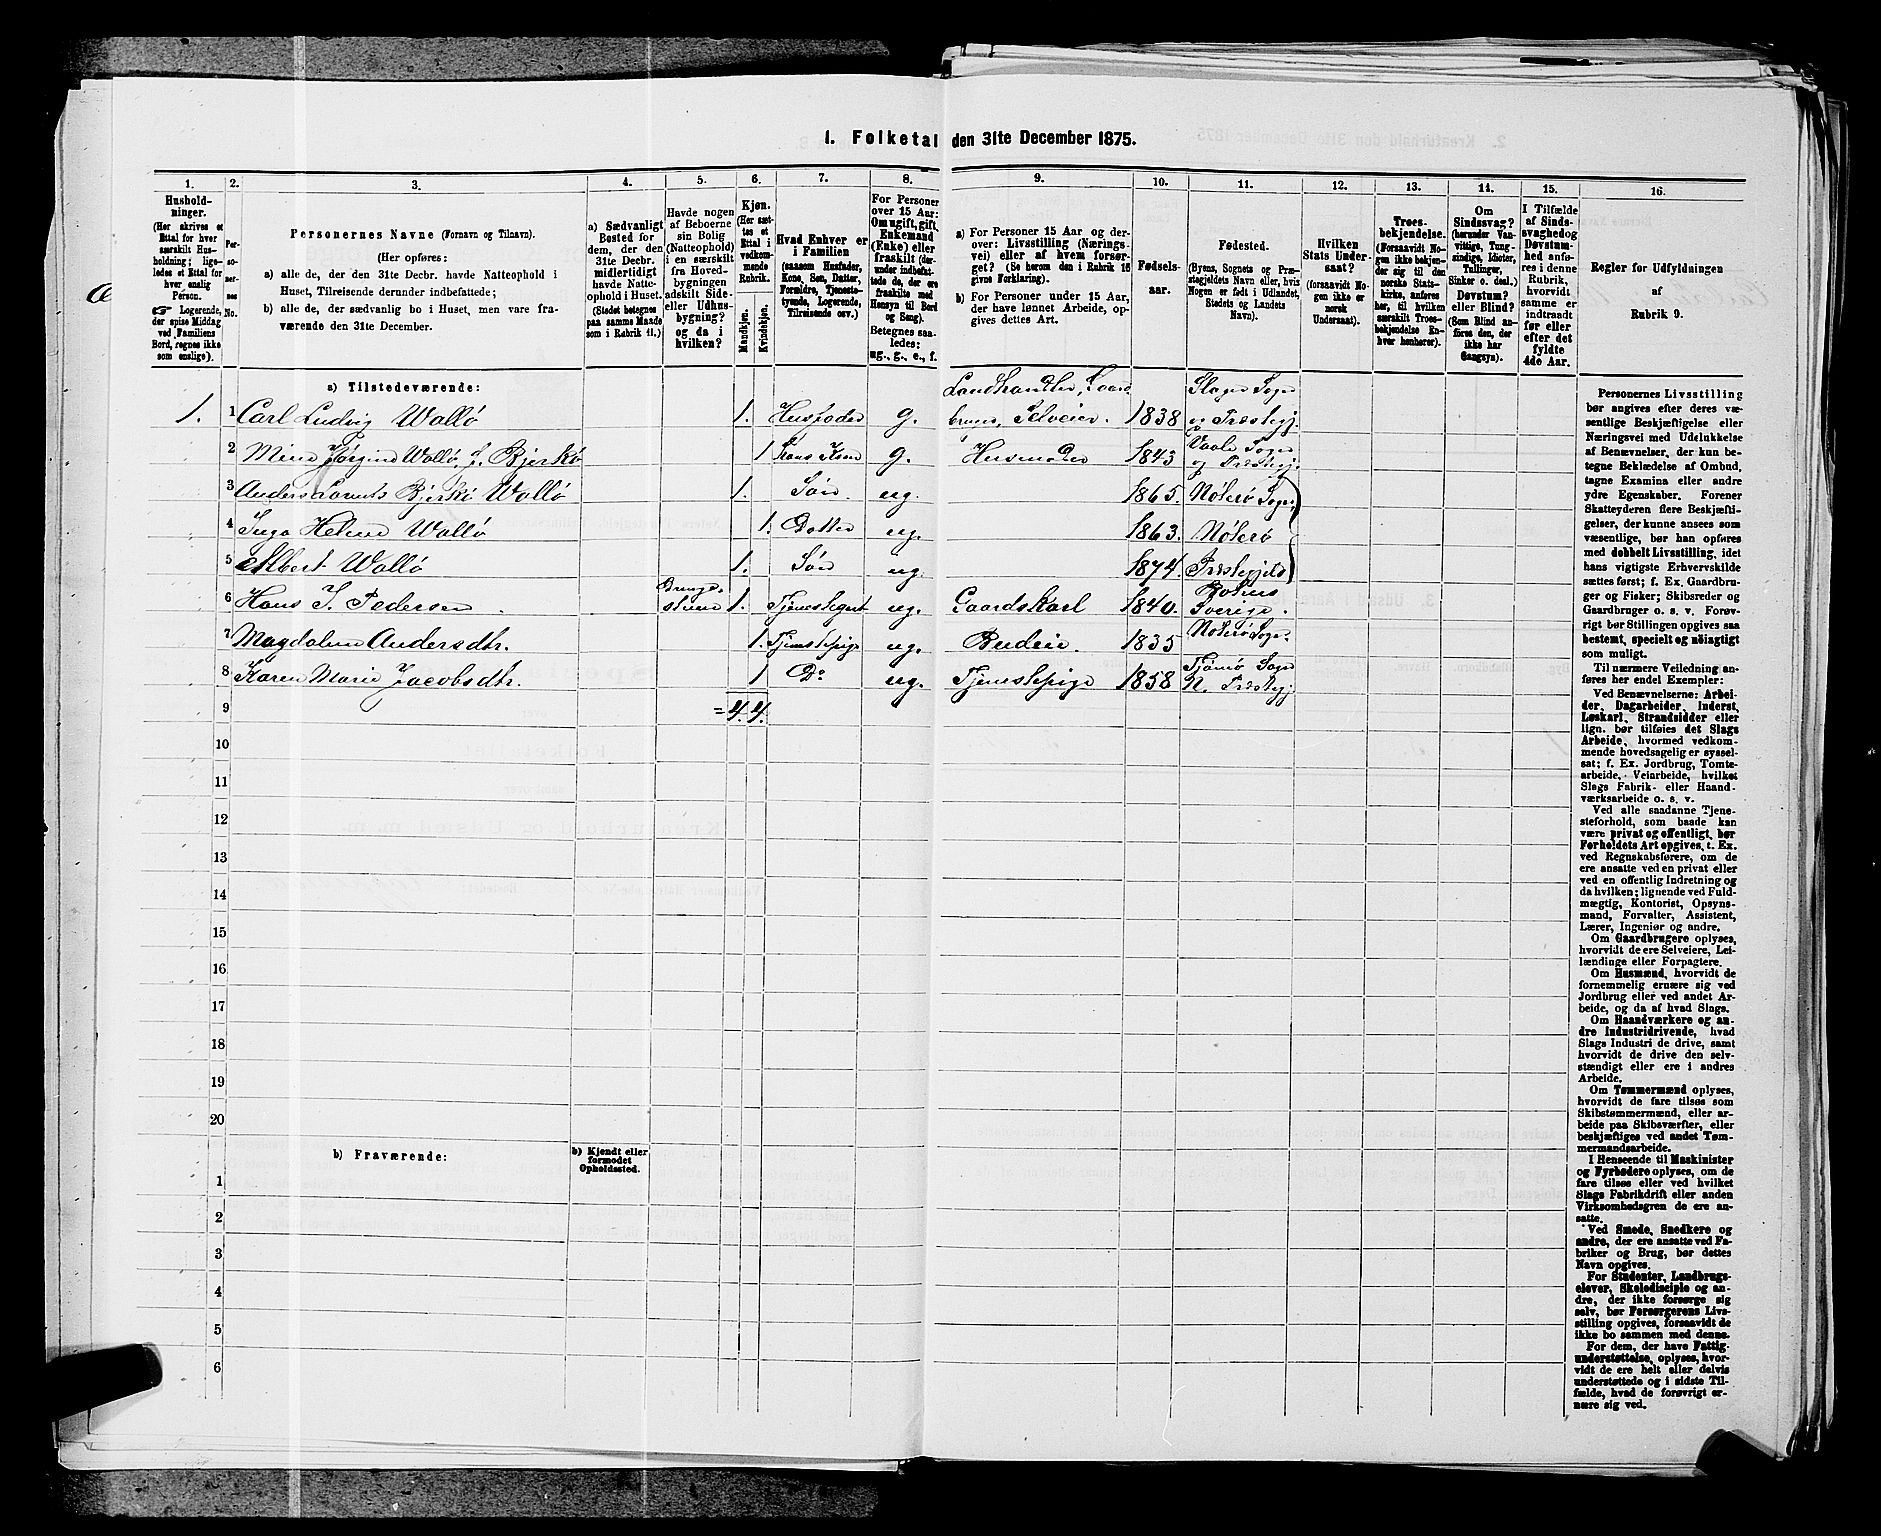 1. Folketal den 31te December 1875.
1.
2.
3.
4.
5.
6.
7.
8.
9.
10.
11.
12.
13.
14.
15.
16.
Hushold-
ninger.
(Her skrives et
Ettal for hver
særskilt Hus-
holdning; lige-
ledes et Ettal for
hver enslig
Person.
☞ Logerende,
der spise Middag
ved Familiens
Bord, regnes ikke
som enslige).
Per-
so-
ner-
nes
No.
Personernes Navne (Fornavn og Tilnavn).
(Her opføres:
a) alle de, der den 31te Decbr. havde Natteophold i
Huset, Tilreisende derunder indbefattede;
b) alle de, der sædvanlig bo i Huset, men vare fra-
værende den 31te December.
a) Sædvanligt
Bosted for
dem, der den
31te Decbr.
midlertidigt
havde Natte-
ophold i Huset.
(Stedet betegnes
paa samme Maade
som i Rubrik 11.)
Havde nogen
af Beboerne
sin Bolig
(Natteophold)
i en særskilt
fra Hoved-
bygningen
adskilt Side-
eller Udhus-
bygning?
og da i
hvilken?
Kjøn.
(Her sæt-
tes et
Ettal i
vedkom-
mende
Rubrik.
Mandkjøn.
Kvindekjøn.
Hvad Enhver er
i Familien
(saasom Husfader,
Kone, Søn, Datter,
Forældre, Tjeneste-
tyende, Logerende,
Tilreisende osv.)
For Personer
over 15 Aar:
Om ugift, gift,
Enkemand
(Enke) eller
fraskilt (der-
under indbefat-
tede de, der ere
fraskilte med
Hensyn til Bord
og Seng).
Betegnes saa-
ledes:
ug., g., e., f.
a) For Personer 15 Aar og der-
over: Livsstilling (Nærings-
vei) eller af hvem forsør-
get? (Se herom den i Rubrik 16
givne Forklaring).
b) For Personer under 15 Aar,
der have lønnet Arbeide, op-
gives dettes Art.
Fødsels-
aar.
Fødested.
(Byens, Sognets og Præ-
stegjeldets Navn eller, hvis
Nogen er født i Udlandet,
Stedets og Landets
Navn).
Hvilken
Stats Under-
saat?
(forsaavidt No-
gen ikke er
norsk
Undersaat).
Troes-
bekjendelse.
(Forsaavidt No-
gen ikke bekjen-
der sig til den
norske Stats-
kirke, anføres
her, til hvilken
særskilt Troes-
bekjendelse En-
hver henhører).
Om
Sindssvag?
(herunder Van-
vittige, Tung-
sindige, Idioter,
Tullinger,
Sinker o. desl.)
Døvstum?
eller Blind?
(Som Blind an-
føres den, der
ikke har
Gangsyn).
I Tilfælde
af Sinds-
svaghed og
Døvstum-
hed anfø-
res i denne
Rubrik,
hvorvidt
samme er
indtraadt
før eller
efter det
fyldte
4de Aar.
Regler for Udfyldningen
af
Rubrik 9.
a) Tilstedeværende:
Landhandler, Gaard-
Slagn Sogn
1. 1 Carl Ludvig Wallø 1. Husfader g. bruger, Selveier. 1838 og Præstegj.
Vaale Sogn
2 Mine Jørgine Wallø, f. Bjerkø 1 hans Kone g. Husmoder 1843 og Præstegj.
3 Anders Bjerkø Wallø 1. Søn. ug. 1865. Nøterø Sogn
4 Inga Helene Wallø 1. Datter ug. 1863. Nøterø
5 Albert Wallø 1. Søn ug. 1874. Præstegjeld
6 Hans J. Pedersen 1. Tjenestegut ug. Gaardskarl 1840. Sverige.
7 Magdalene Andersdtr. 1. Tjenestepige ug. Budeie. 1835 Nøterø Sogn.
Tjømø Sogn
8 Karen Marie Jacobsdtr. 1 Do ug. Tjenestepige 1858 N. Præstegj.
9 = 4. 4.
10
11
12
13
14
15
16
17
18
19
20
b) Fraværende:
b) Kjendt eller
formodet
Opholdssted.
1
2
3
4
5
6
Personernes Livsstilling
bør angives efter deres væ-
sentlige Beskjæftigelse eller
Næringsvei med Udelukkelse
af Benævnelser, der kun be-
tegne Beklædelse af Ombud,
tagne Examina eller andre
ydre Egenskaber. Forener
Skatteyderen flere Beskjæfti-
gelser, der kunne ansees som
væsentlige, bør han opføres
med dobbelt Livsstilling, idet
hans vigtigste Erhvervskilde
sættes først; f. Ex. Gaardbru-
ger og Fisker; Skibsreder og
Gaardbruger o. s. v. Forøv-
rigt bør Stillingen opgives saa
bestemt, specielt og nøiagtigt
som muligt.
Til nærmere Veiledning an-
føres her endel Exempler:
Ved Benævnelserne: Arbei-
der, Dagarbeider, Inderst,
Løskarl, Strandsidder eller
lign. bør tilføies det Slags
Arbeide, hvormed vedkom-
mende hovedsagelig er syssel-
sat; f. Ex. Jordbrug, Tomte-
arbeide, Veiarbeide, hvilket
Slags Fabrik- eller Haand-
værksarbeide o. s. v.
Ved alle saadanne Tjene-
steforhold, som baade kan
være privat og offentligt, bør
Forholdets Art opgives, t. Ex.
ved Regnskabsførere, om de
ere ansatte ved en privat eller
ved en offentlig Indretning og
da hvilken; lignende ved Fuld-
mægtig, Kontorist, Opsyns-
mand, Forvalter, Assistent,
Lærer, Ingeniør og andre.
Om Gaardbrugere oplyses,
hvorvidt de ere Selveiere, Lei-
lændinge eller Forpagtere.
Om Husmænd, hvorvidt de
fornemmelig ernære sig ved
Jordbrug eller ved andet Ar-
beide, og da af hvad Slags.
Om Haandværkere og an-
dre Industridrivende, hvad
Slags Industri de drive, samt
hvorvidt de drive den selv-
stændigt eller ere i andres
Arbeide.
Om Tømmermænd oplyses,
hvorvidt de fare tilsøs som
Skibstømmermænd, eller ar-
beide paa Skibsværfter, eller
beskjæftiges ved andet Tøm-
mermandsarbeide.
I Henseende til Maskinister
og Fyrbødere oplyses, om de
fare tilsøs eller ved hvilket
Slags Fabrikdrift eller anden
Virksomhedsgren de ere an-
satte.
Ved Smede, Snedkere og
andre, der ere ansatte ved Fa-
briker og Brug, bør dettes
Navn opgives.
For Studenter, Landbrugs-
elever, Skoledisciple og an-
dre, der ikke forsørge sig
selv, bør Forsørgerens Livs-
stilling opgives, forsaavidt de
ikke bo sammen med denne.
For dem, der have Fattig-
understøttelse, oplyses, hvor-
vidt de ere helt eller delvis
understøttede og i sidste Til-
fælde, hvad de forøvrigt er-
nære sig ved.